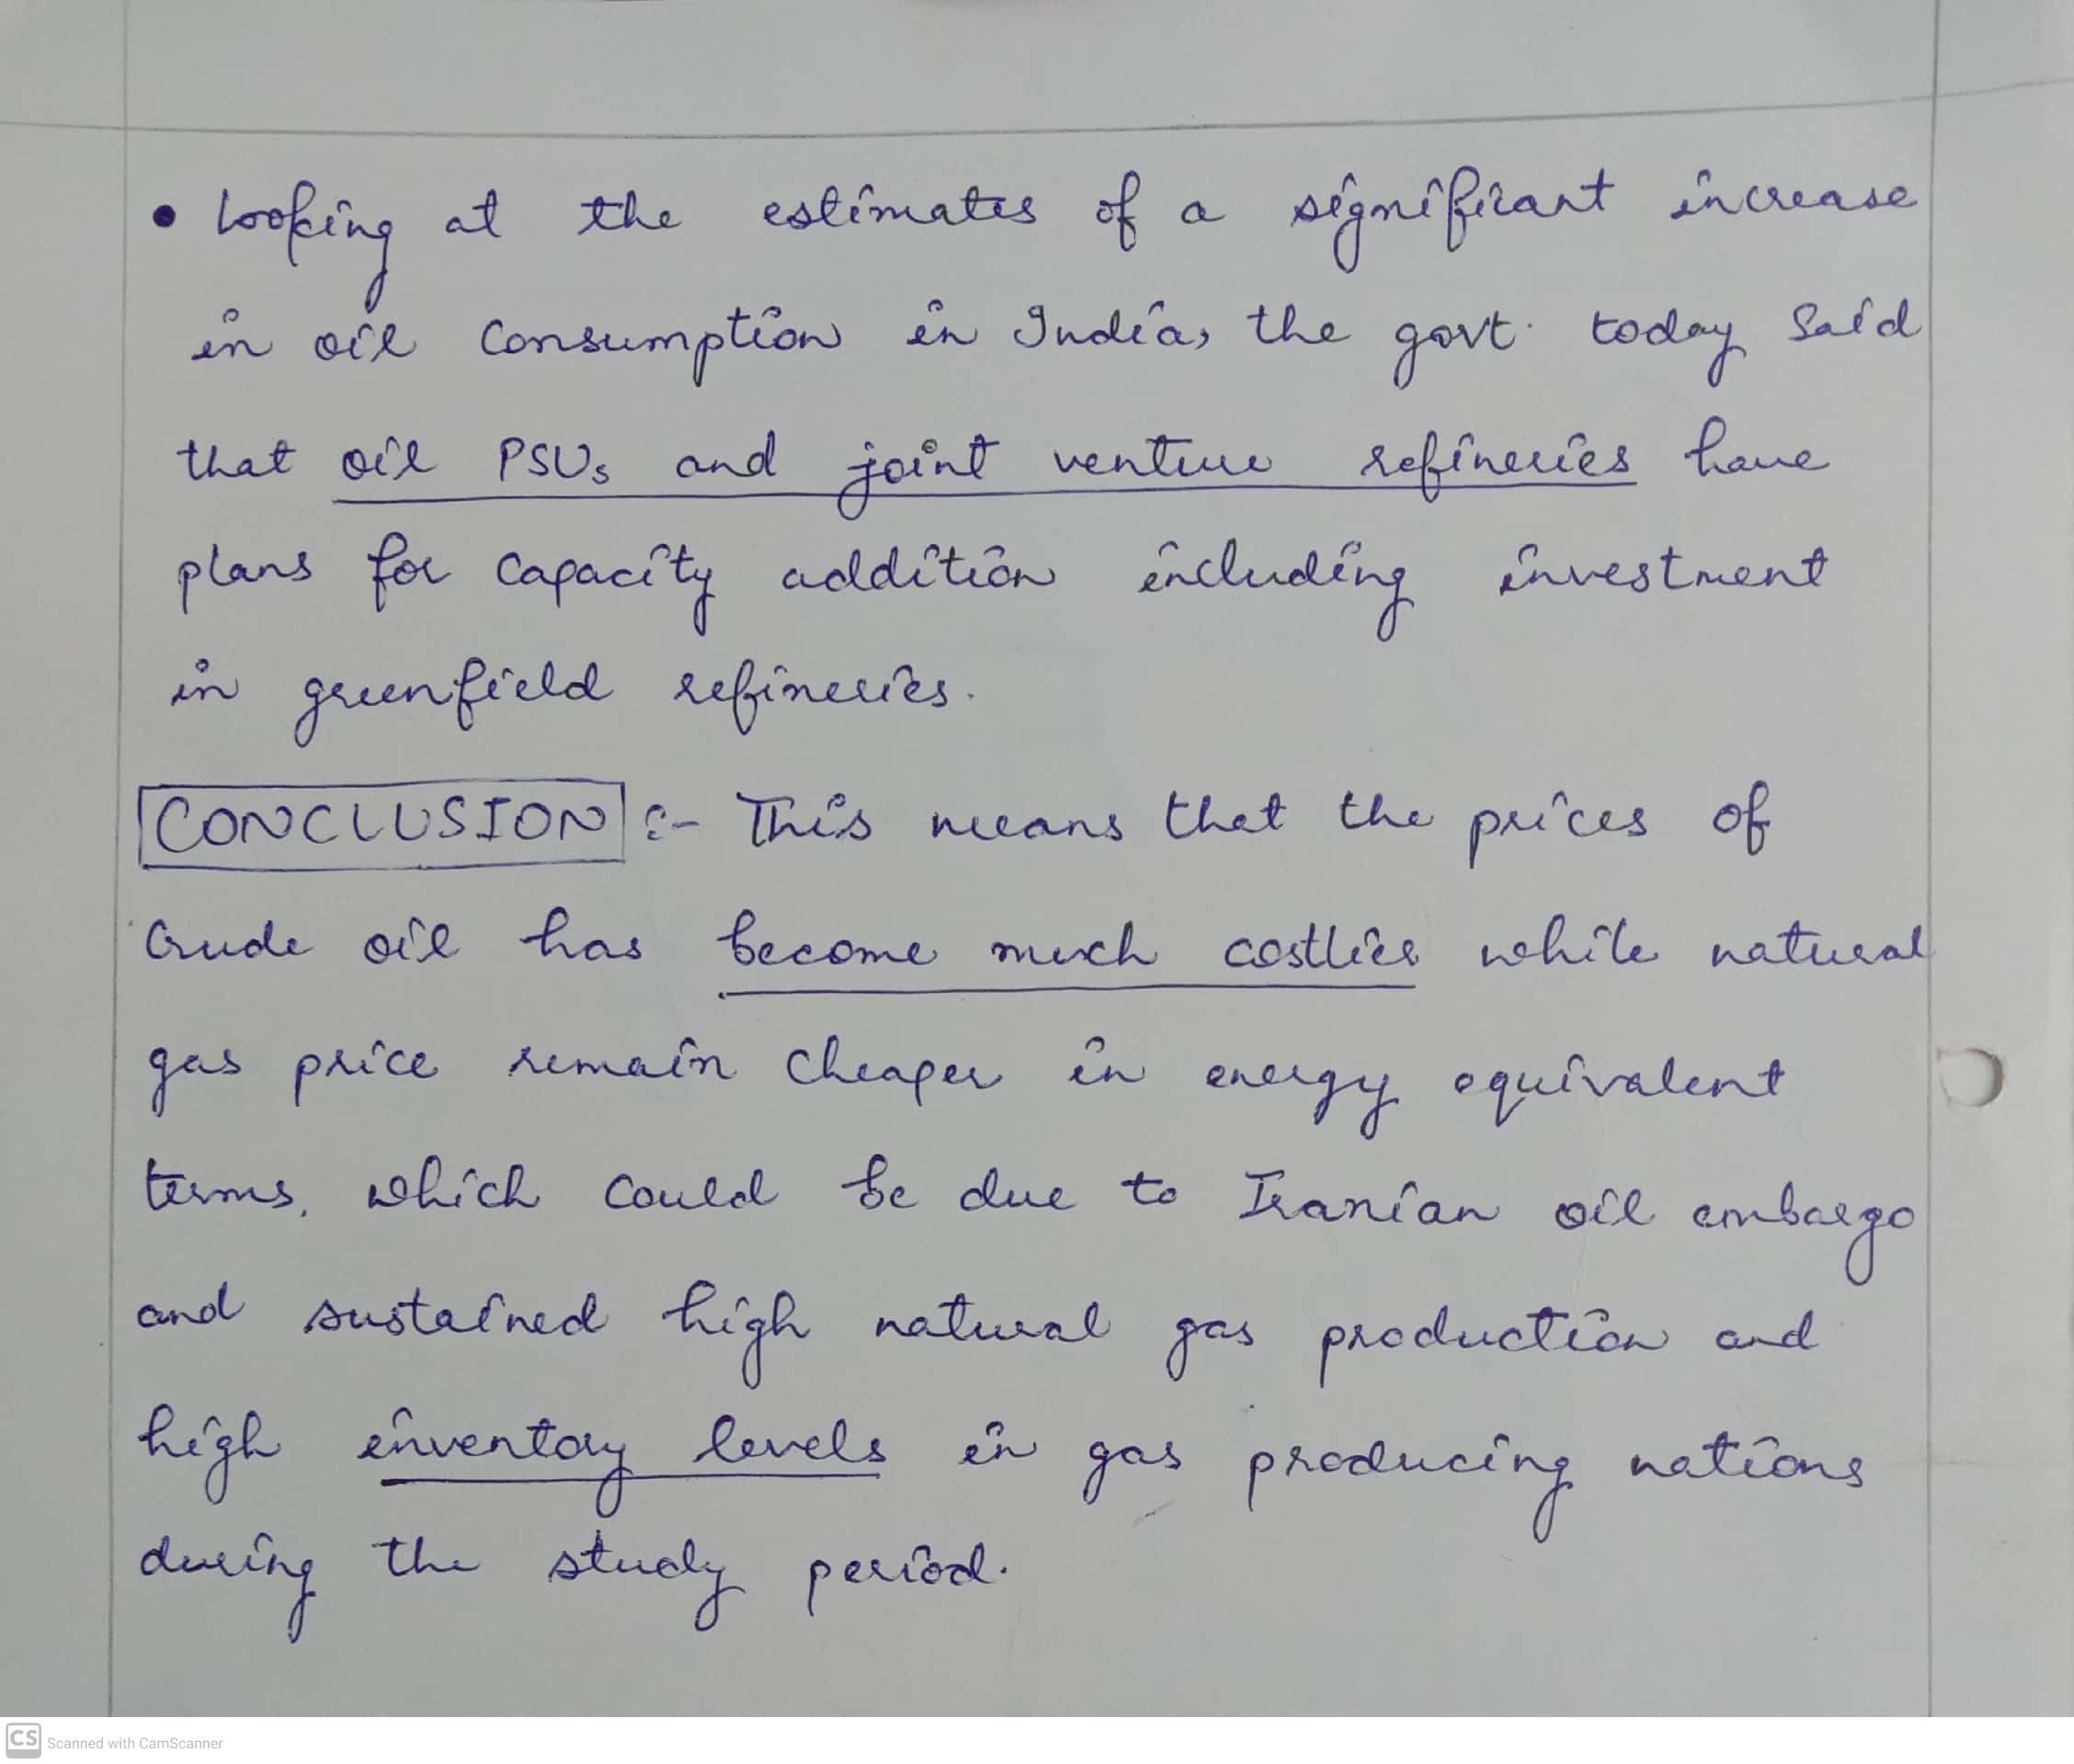 • Looking at the estimates of a significant increase
in oil consumption in India, the govt. today said
that oil PSUs and joint venture refineries have
plans for capacity addition including investment
in greenfield refineries.
CONCLUSION :- This means that the prices of
crude oil has become much costlier while natural
gas price remain cheaper in energy equivalent
terms, which could be due to Iranian oil embargo
and sustained high natural gas production and
high inventory levels in gas producing nations
during the study period.
CS Scanned with CamScanner